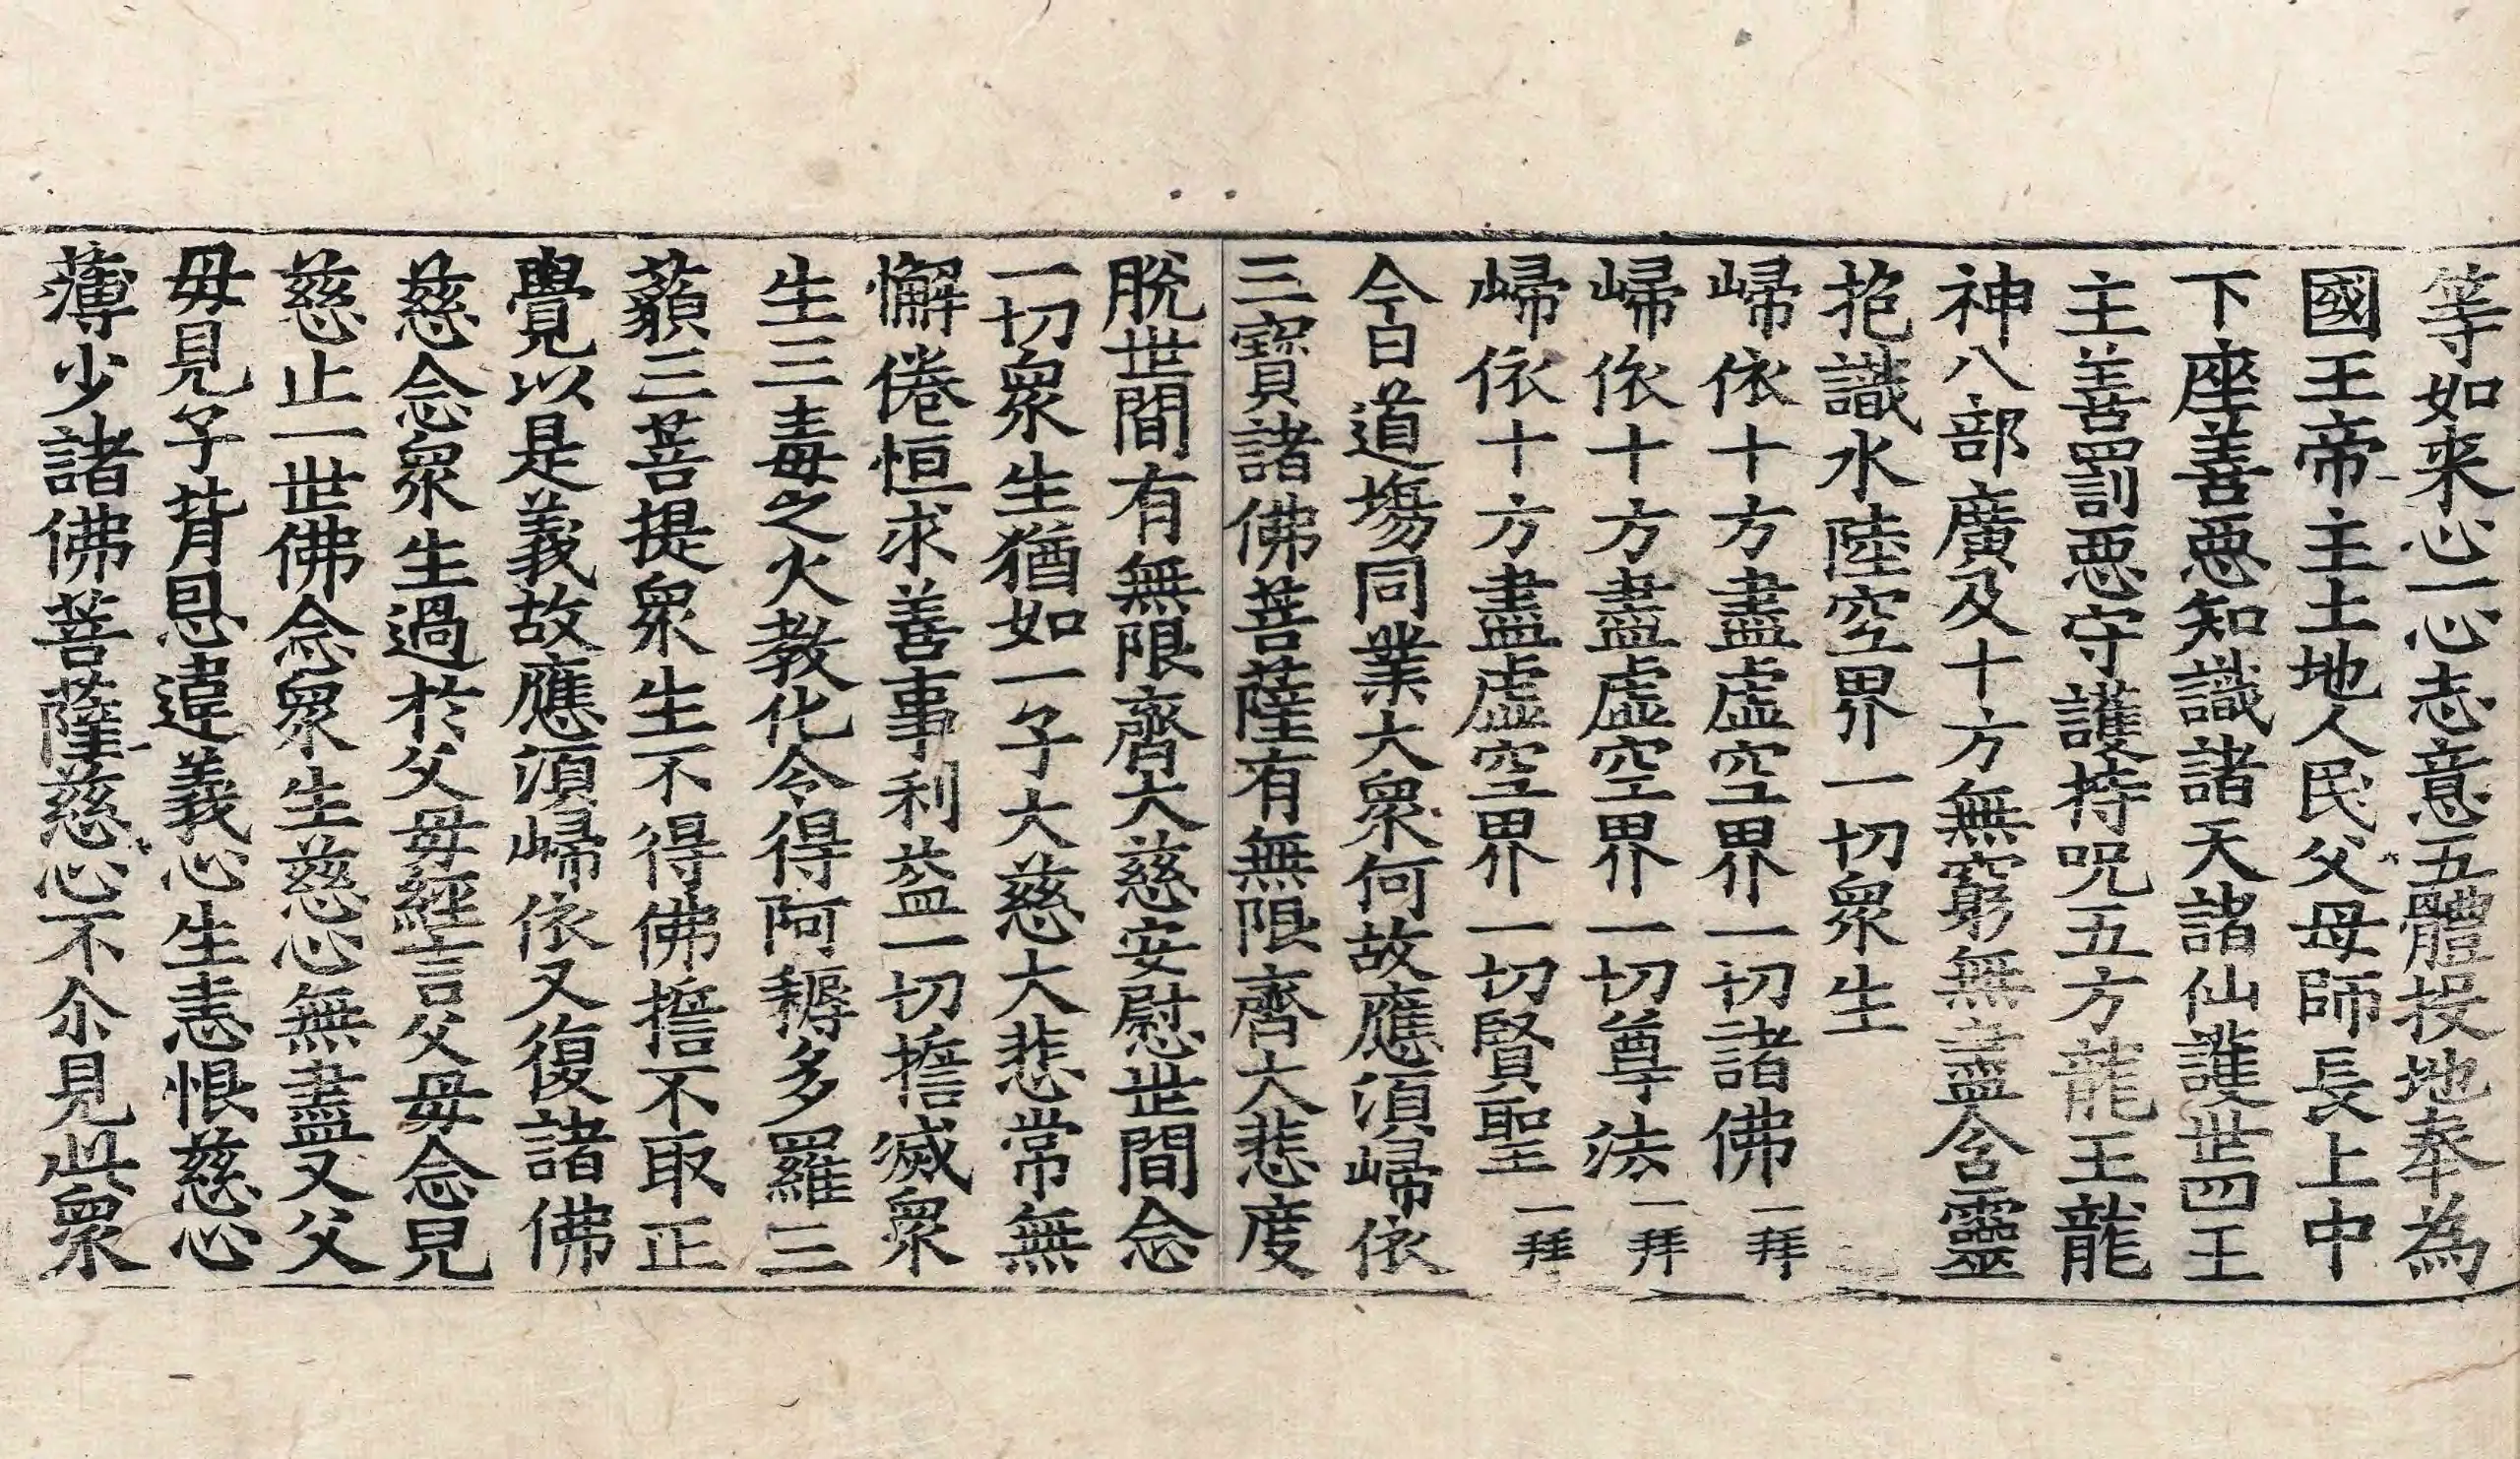 等如来心一心志意五體投地奉為
國王帝主土地人民父母師長上中
下座善惡知識諸天諸仙護世四王
主善罰惡守護持呪五方龍王龍
神八部廣及十方無窮無盡含靈
抱識水陸空界一切衆生
歸依十方盡虛空界一切諸佛 一拜
歸依十方盡虛空界一切尊法 一拜
歸依十方盡虛空界一切賢聖 一拜
今日道塲同業大衆何故應湏歸依
三寶諸佛菩薩有無限齊大悲度
脫世間有無限齊大慈安慰世間念
一切衆生猶如一子大慈大悲常無
懈倦恒求善事利益一切誓滅衆
生三毒之火教化令得阿耨多羅三
藐三菩提衆生不得佛誓不取正
覺以是義故應湏歸依又復諸佛
慈念衆生過於父母經言父母念見
慈止一世佛念衆生慈心無盡又父
母見子背恩違義心生恚恨慈心
薄少諸佛菩薩慈心不尒見此衆